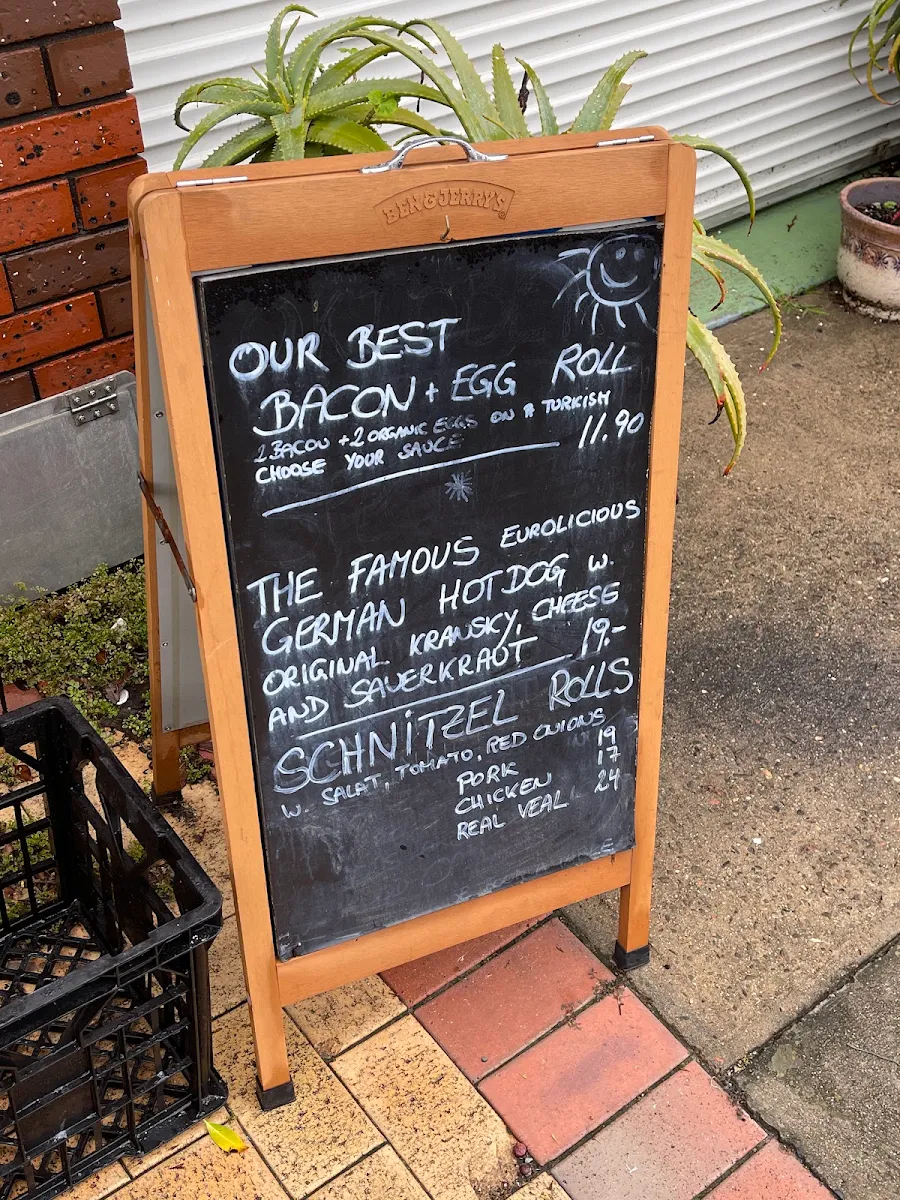 BEN & JERRY'S
OUR BEST
BACON + EGG ROLL
2 BACON + 2 ORGANIC EGGS ON A TURKISH
CHOOSE YOUR SAUCE 11.90
THE FAMOUS EUROLICIOUS
GERMAN HOTDOG W.
ORIGINAL KRANSKY, CHEESE
AND SAUERKRAUT 19.-
SCHNITZEL ROLLS
W. SALAT, TOMATO, RED ONIONS
PORK 19
CHICKEN 17
REAL VEAL 24